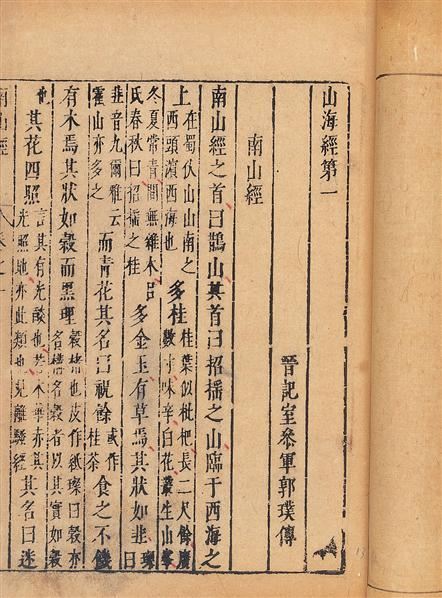 山海經第一
晉記室參軍郭璞傳
南山經
南山經之首曰鵲山其首曰招搖之山臨于西海之
上在蜀伏山山南之西頭濱西海也多桂桂葉似枇杷長二尺餘廣數寸味辛白花叢生山峯
冬夏常青間無雜木呂氏春秋曰招搖之桂多金玉有草焉其狀如韭璨曰
韭音九爾雅云霍山亦多之而青花其名曰祝餘或作桂荼食之不饑
有木焉其狀如榖而黑理榖楮也皮作紙璨曰榖亦名構名榖者以其實如榖
也其花四照言其有光燄也若木華亦其光照地亦此類也見離騷經其名曰迷
南山經 卷之一